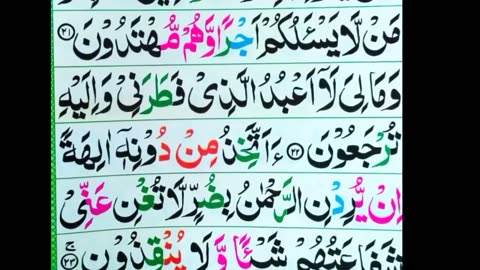 مَنْ لَّا يَسْـَٔلُكُمْ اَجْرًا وَّهُمْ مُّهْتَدُوْنَ ۲۱
وَمَا لِیَ لَاۤ اَعْبُدُ الَّذِیْ فَطَرَنِیْ وَاِلَیْهِ
تُرْجَعُوْنَ ۲۲ ءَاَتَّخِذُ مِنْ دُوْنِهٖۤ اٰلِهَةً
اِنْ یُّرِدْنِ الرَّحْمٰنُ بِضُرٍّ لَّا تُغْنِ عَنِّیْ
شَفَاعَتُهُمْ شَیْـًٔا وَّلَا یُنْقِذُوْنِ ۲۳ ج